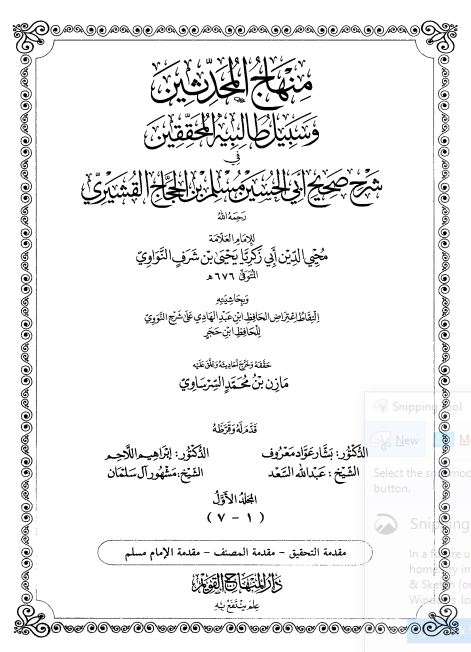 مِنْهَاجُ الْمُحَدِّثِينَ
وَسَبِيلُ طَالِبِيهِ الْمُحَقِّقِينَ
فِي
شَرْحِ صَحِيحِ أَبِي الْحُسَيْنِ مُسْلِمِ بْنِ الْحَجَّاجِ الْقُشَيْرِيِّ
رَحِمَهُ اللهُ
لِلْإِمَامِ الْعَلَّامَةِ
مُحْيِي الدِّينِ أَبِي زَكَرِيَّا يَحْيَىٰ بْنِ شَرَفٍ النَّوَاوِيِّ
المُتَوَفَّىٰ ٦٧٦ هـ
وَبِحَاشِيَتِهِ
الْتِقَاطُ اعْتِرَاضِ الْحَافِظِ ابْنِ عَبْدِ الْهَادِي عَلَىٰ شَرْحِ النَّوَوِيِّ
لِلْحَافِظِ ابْنِ حَجَرٍ
حَقَّقَهُ وَخَرَّجَ أَحَادِيثَهُ وَعَلَّقَ عَلَيْهِ
مَازِنُ بْنُ مُحَمَّدٍ السِّرْسَاوِيُّ
قَدَّمَ لَهُ وَقَرَّظَهُ
الدُّكْتُور: بَشَّار عَوَّاد مَعْرُوف الدُّكْتُور: إِبْرَاهِيم اللَّاحِم
الشَّيْخ: عَبْدالله السَّعْد الشَّيْخ: مَشْهُور آل سَلْمَان
المُجَلَّدُ الأَوَّلُ
(١ - ٧)
مقدمة التحقيق - مقدمة المصنف - مقدمة الإمام مسلم
دَارُ الْمِنْهَاجِ الْقَوِيمِ
عِلْمٌ يُنْتَفَعُ بِهِ
Snipping Tool
New
Select the
button.
Snipping
In a
home
& Sk